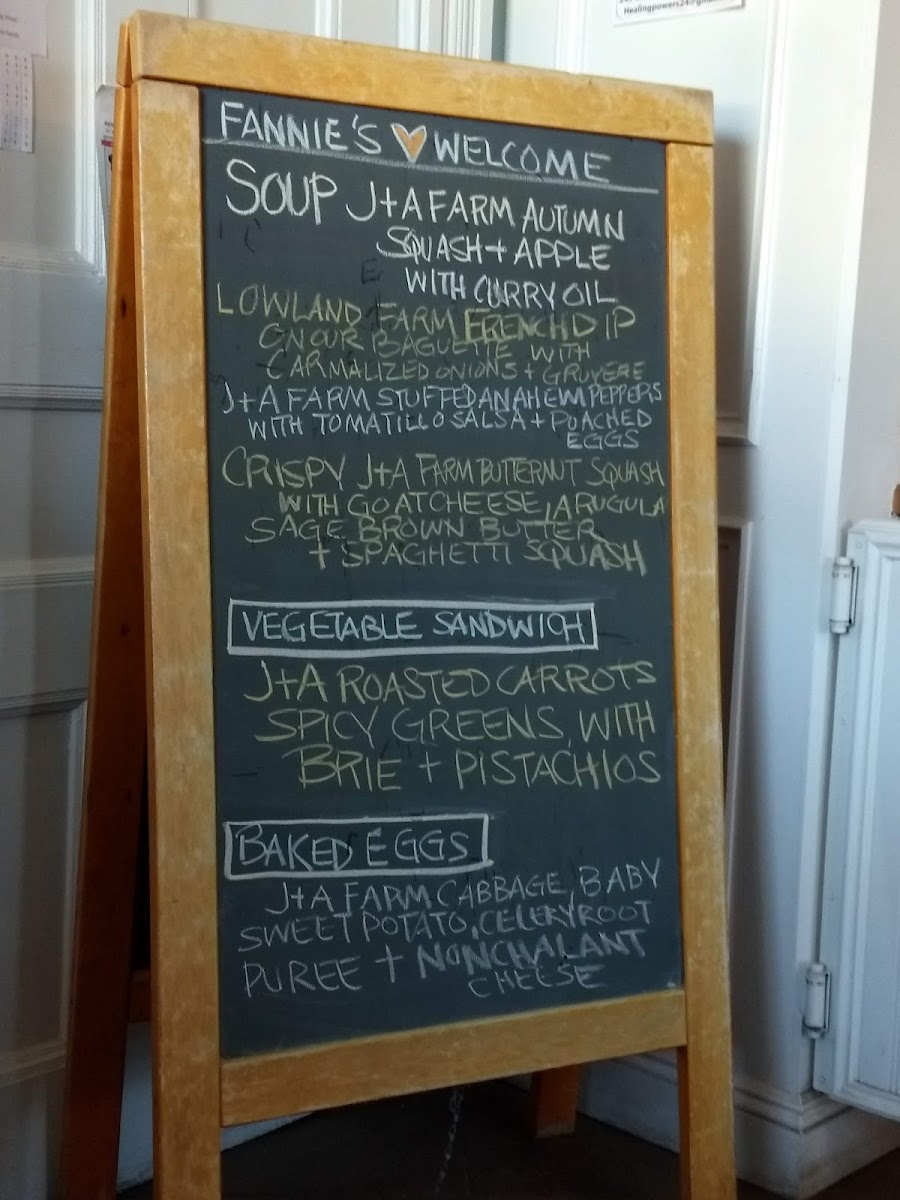 Healingpowers24@gmail
FANNIE'S WELCOME
SOUP J+A FARM AUTUMN
SQUASH + APPLE
WITH CURRY OIL
LOWLAND FARM FRENCH DIP
ON OUR BAGUETTE WITH
CARMALIZED ONIONS + GRUYERE
J+A FARM STUFFED ANAHEIM PEPPERS
WITH TOMATILLO SALSA + POACHED
EGGS
CRISPY J+A FARM BUTTERNUT SQUASH
WITH GOAT CHEESE, ARUGULA
SAGE BROWN BUTTER
+ SPAGHETTI SQUASH
VEGETABLE SANDWICH
J+A ROASTED CARROTS
SPICY GREENS, WITH
BRIE + PISTACHIOS
BAKED EGGS
J+A FARM CABBAGE, BABY
SWEET POTATO, CELERY ROOT
PUREE + NONCHALANT
CHEESE